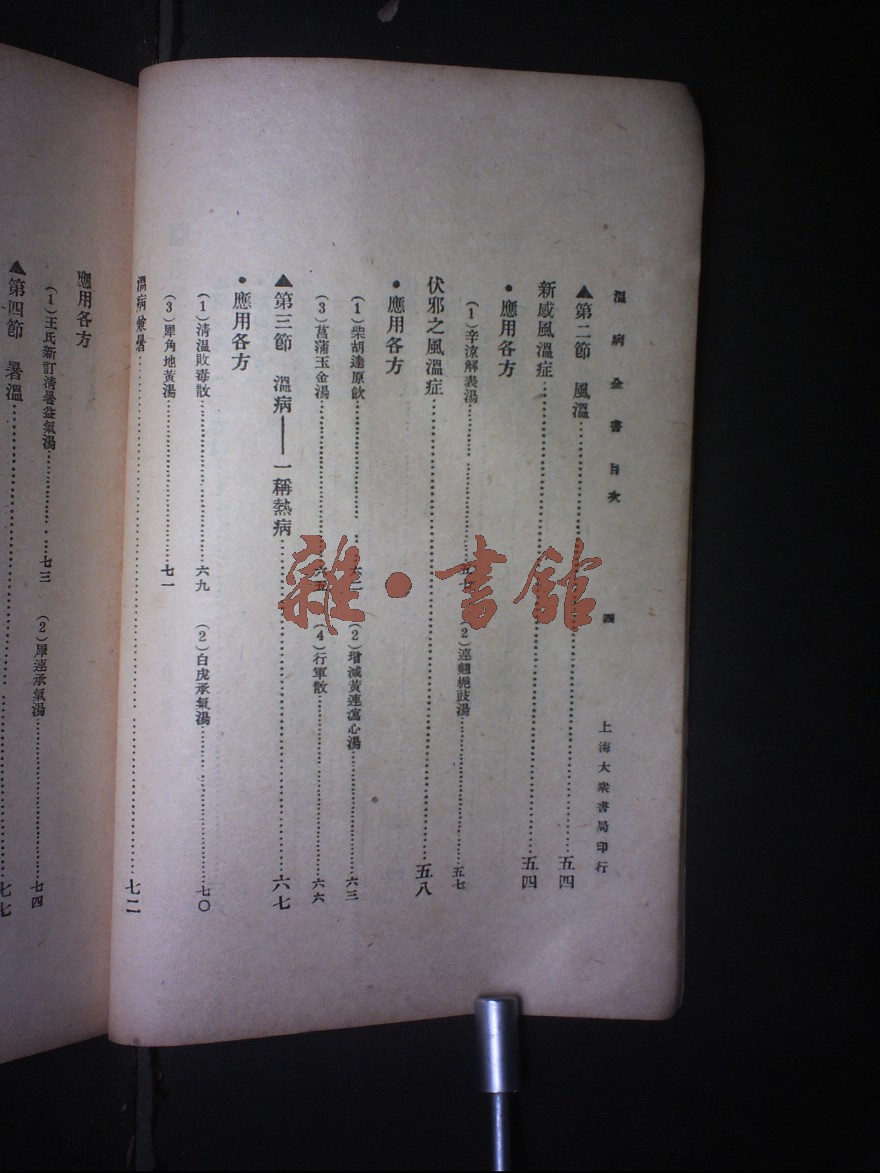 溫病全書目次 四 上海大衆書局印行
▲第二節 風溫……五四
新感風溫症……五四
●應用各方
(1)辛涼解表湯……五七 (2)連翹梔豉湯……五七
伏邪之風溫症……五八
●應用各方
(1)柴胡達原飲…… (2)增減黃連瀉心湯……六三
(3)菖蒲玉金湯……六五 (4)行軍散……六六
▲第三節 溫病——一稱熱病……六七
●應用各方
(1)清溫敗毒散……六九 (2)白虎承氣湯……七〇
(3)犀角地黃湯……七一
溫病兼暑……七二
應用各方
(1)王氏新訂清暑益氣湯……七三 (2)犀連承氣湯……七四
▲第四節 暑溫……七七
雜·書館